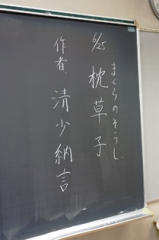 まくらのそうし
6/25 枕草子
作者 清少納言